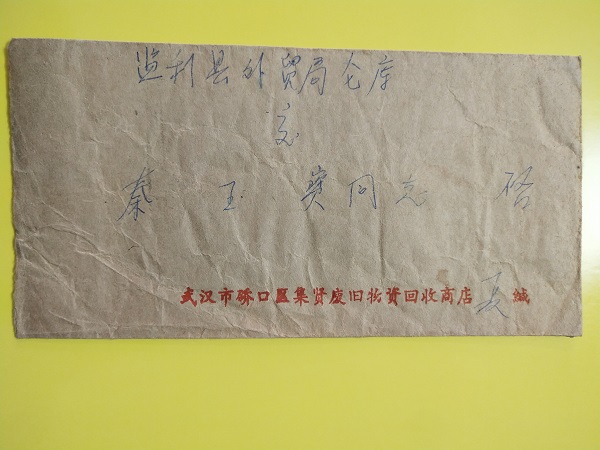 监利县外贸局仓库
交
秦玉 同志 启
武汉市硚口区集贤废旧物资回收商店 缄